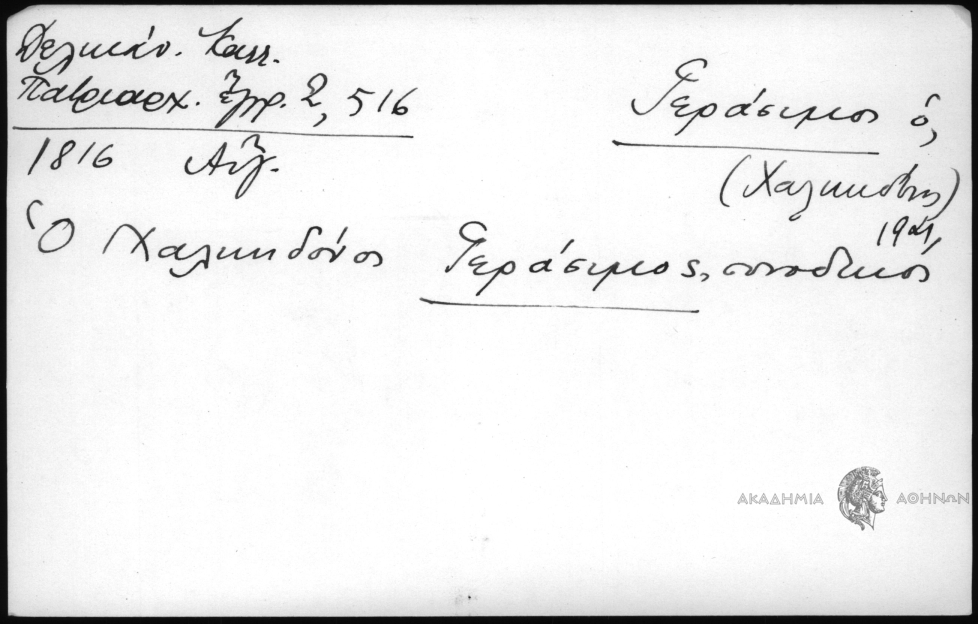 Δελικάν. Καλλ.
Πατριαρχ. Ἔγγρ. 2, 516
1816 Αὔγ.
Γεράσιμος ὁ,
(Χαλκηδόνος)
Ὁ Χαλκηδόνος Γεράσιμος, συνοδικός
ΑΚΑΔΗΜΙΑ ΑΘΗΝΩΝ